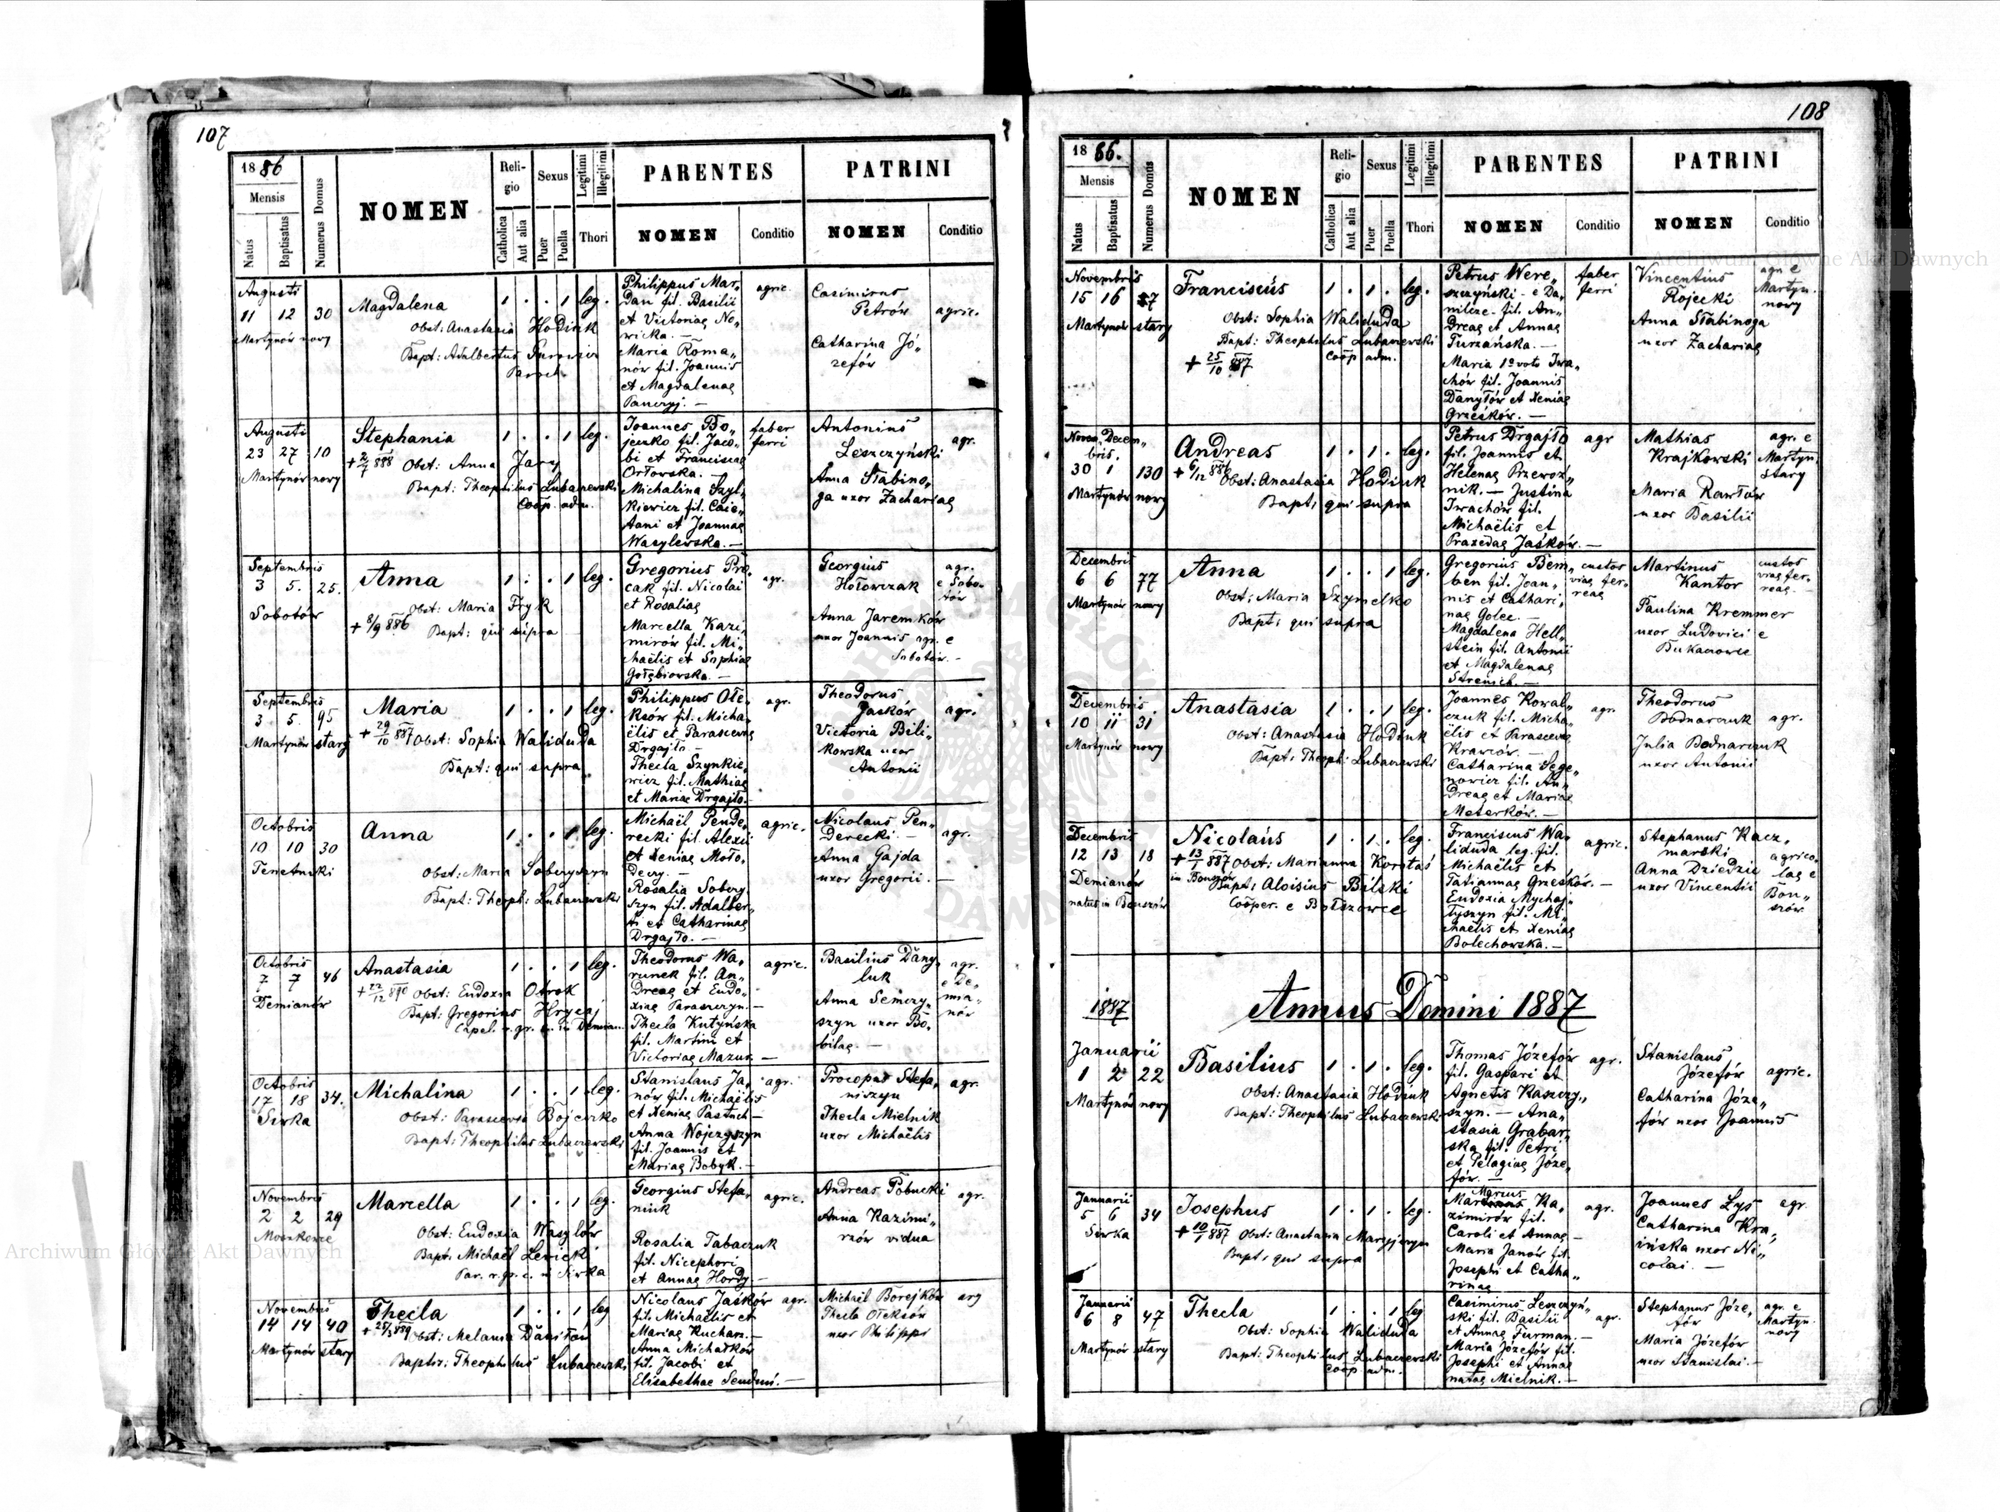 107
1886
Mensis
Natus
Baptisatus
Numerus Domus
NOMEN
Religio
Catholica
Aut alia
Sexus
Puer
Puella
Legitimi
Illegitimi
Thori
PARENTES
NOMEN
Conditio
PATRINI
NOMEN
Conditio
Augusti
11 12 30
Martynów nowy
Magdalena
Obst: Anastasia Hodiuk
Bapt: Adalbertus
1 . . 1 leg.
Philippus Mar„
Dan fil. Basilii
et Victoriae No„
wicka. —
Maria Roma„
nów fil. Joannis
et Magdalenae
agric.
Casimirus
Petrów
Catharina Jó„
zefów
agric.
Augusti
23 27 10
Martynów nowy
Stephania
Obst: Anna Jary
Bapt: Theophilus Lubaczewski
Coop. adm.
1 . . 1 leg.
Joannes Bo„
jczuko fil. Jaco„
bi et Franciscae
Orłowska. —
Michalina Szyl„
kiewicz fil. Caje„
tani et Joannae
Wasylewska. —
faber
ferri
Antonius
Leszczyński
Anna Słabino„
ga uxor Zachariae
agr.
Septembris
3 5. 25.
Sobotów
Anna
Obst: Maria Fryk
+ 8/9 886 Bapt: qui supra
1 . . 1 leg.
Gregorius Pro„
cak fil. Nicolai
et Rosaliae
Marcella Kazi„
mirów fil. Mi„
chaëlis et Sophiae
Gołębiowska. —
agr.
Georgius
Hołowczak
Anna Jaremków
uxor Joannis agr. e
Sobotów. —
agr.
e Sobo„
tów
Septembris
3 5. 95
Martynów stary
Maria
+ 29/10 887 Obst: Sophia Waliduda
Bapt: qui supra
1 . . 1 leg.
Philippus Ole„
ksów fil. Micha„
ëlis et Parascevae
Drgajło —
Thecla Szynkie„
wicz fil. Mathiae
et Mariae Drgajło.
agr.
Theodorus
Jasków
Victoria Bili„
kowska uxor
Antonii
agr.
Octobris
10 10 30
Tenetniki
Anna
Obst: Maria Soberyszyn
Bapt: Theoph: Lubaczewski
1 . . 1 leg.
Michaël Pende„
recki fil. Alexii
et Xeniae Moło„
Decy. —
Rosalia Sobery„
szyn fil. Adalber„
ti et Catharinae
Drgajło. —
agric.
Nicolaus Pen„
Derecki. —
Anna Gajda
uxor Gregorii. —
agr.
Octobris
7 7 46
Demianów
Anastasia
Obst: Eudoxia Otrok
Bapt: Gregorius Hrycaj
1 . . 1 leg.
Theodorus Wa„
runek fil. An„
Dreae et Eudo„
xiae Parasczyn. —
Thecla Kutyńska
fil. Martini et
Victoriae Mazur —
agric.
Basilius Dany„
luk
Anna Semczy„
szyn uxor Ba„
silii. —
agr.
e De„
mia„
nów
Octobris
17 18 34.
Siwka
Michalina
Obst: Parascevia Bojczuko
Bapt: Theophilus Lubaczewski
1 . . 1 leg.
Stanislaus Ja„
nów fil. Michaëlis
et Xeniae Pastuch —
Anna Wojczyszyn
fil. Joannis et
Mariae Bobyk. —
agr.
Procopus Stefa„
niszyn
Thecla Mielnik
uxor Michaëlis
agr.
Novembris
2 2 29
Marcella
Obst: Eudoxia Wasylów
Bapt: Michaël Levicki
Par. r. gr. c. in Siwka
1 . . 1 leg.
Georgius Stefa„
niuk
Rosalia Tabaczuk
fil. Nicephori
et Annae Hordy —
agric.
Andreas Pobucki
Anna Kazimi„
rzów vidua
agr.
Novembris
14 14 40
Martynów stary
Thecla
Obst: Melania Daniłów
Baptis: Theophilus Lubaczewski
1 . . 1 leg
Nicolaus Jasków
fil. Michaëlis et
Mariae Kuchar. —
Anna Michałków
fil. Jacobi et
Elisabethae
agr.
Michaël Borejków
Thecla Oleksów
uxor Philippi
agr
108
1886.
Mensis
Natus
Baptisatus
Numerus Domus
NOMEN
Religio
Catholica
Aut alia
Sexus
Puer
Puella
Legitimi
Illegitimi
Thori
PARENTES
NOMEN
Conditio
PATRINI
NOMEN
Conditio
Novembris
15 16 37
Martynów stary
Franciscus
Obst: Sophia Waliduda
Bapt: Theophilus Lubaczewski
Coop adm.
+ 25/10 887
1 . 1 . leg.
Petrus Were„
szczyński e Da„
nilcze fil. An„
Dreae et Annae
Turzańska. —
Maria 1º voto Iwa„
chów fil. Joannis
Danyłów et Xeniae
Grześków. —
faber
ferri
Vincentius
Rojecki
Anna Słabinoga
uxor Zachariae
agr. e
Martyn.
nowy
Novem„ Decem„
bris.
30 1 130
Martynów nowy
Andreas
+ 6/12 886 Obst: Anastasia Hodiuk
Bapt: qui supra
1 . 1 . leg.
Petrus Drgajło
fil. Joannis et
Helenae Przewoź„
nik. — Justina
Iwachów fil.
Michaëlis et
Praxedae Jasków. —
agr
Mathias
Krajkowski
Maria Rawłów
uxor Basilii
agr. e
Martyn.
stary
Decembris
6 6 77
Martynów nowy
Anna
Obst: Maria Szymelko
Bapt: qui supra
1 . . 1 leg.
Gregorius Bem„
ben fil. Joan„
nis et Cathari„
nae Golec. —
Magdalena Hell„
stein fil. Antonii
et Magdalenae
custos
viae fer„
reae
Martinus
Kantor
Paulina Kremmer
uxor Ludovici e
Bukaczowce
custos
viae fer„
reae. —
Decembris
10 11 31
Martynów nowy
Anastasia
Obst: Anastasia Hodiuk
Bapt: Theoph: Lubaczewski
1 . . 1 leg.
Joannes Kowal„
czuk fil. Micha„
ëlis et Parascevae
Krawców. —
Catharina Sege„
nowicz fil. An„
Dreae et Mariae
Meterków. —
agr
Theodorus
Bodnarczuk
Julia Bodnarczuk
uxor Antonii
agr.
Decembris
12 13 18
Demianów
natus in Bouszów
Nicolaus
+ 13/1 887 Obst: Marianna Korotas
in Bouszów Bapt: Aloisius Bilski
Cooper. e Bołszowce
1 . 1 . leg.
Franciscus Wa„
liduda leg. fil.
Michaëlis et
Tatiannae Grześków. —
Eudoxia Mychaj„
łyszyn fil. Mi„
chaëlis et Xeniae
Bolechowska. —
agric.
Stephanus Kacz„
marski
Anna Dziedzic
uxor Vincentii
agrico„
lae e
Bou„
szów
1887
Annus Domini 1887
Januarii
1 2 22
Martynów nowy
Basilius
Obst: Anastasia Hodiuk
Bapt: Theophilus Lubaczewski
1 . 1 . leg.
Thomas Józefów
fil. Gaspari et
Agnetis Kasczy„
szyn. — Ana„
stasia Grabar„
ska fil. Petri
et Pelagiae Józe„
fów. —
agr.
Stanislaus
Józefów
Catharina Józe„
fów uxor Joannis
agric.
Januarii
5 6 34
Siwka
Josephus
+ 10/1 887 Obst: Anastasia
Bapt: qui supra
1 . 1 . leg.
Marcus
Ka„
zimirów fil.
Caroli et Annae —
Maria Janów fil.
Josephi et Catha„
rinae
agr.
Joannes Lys
Catharina Kra„
ińska uxor Ni„
colai. —
agr.
Januarii
6 8 47
Martynów stary
Thecla
Obst: Sophia Waliduda
Bapt: Theophilus Lubaczewski
coop adm.
1 . . 1 leg
Casimirus Leszczyń„
ski fil. Basilii
et Annae Furman. —
Maria Józefów fil.
Josephi et Annae
natae Mielnik. —
agr.
Stephanus Józe„
fów
Maria Józefów
uxor Stanislai. —
agr. e
Martyn.
nowy
Archiwum Główne Akt Dawnych
Archiwum Główne Akt Dawnych